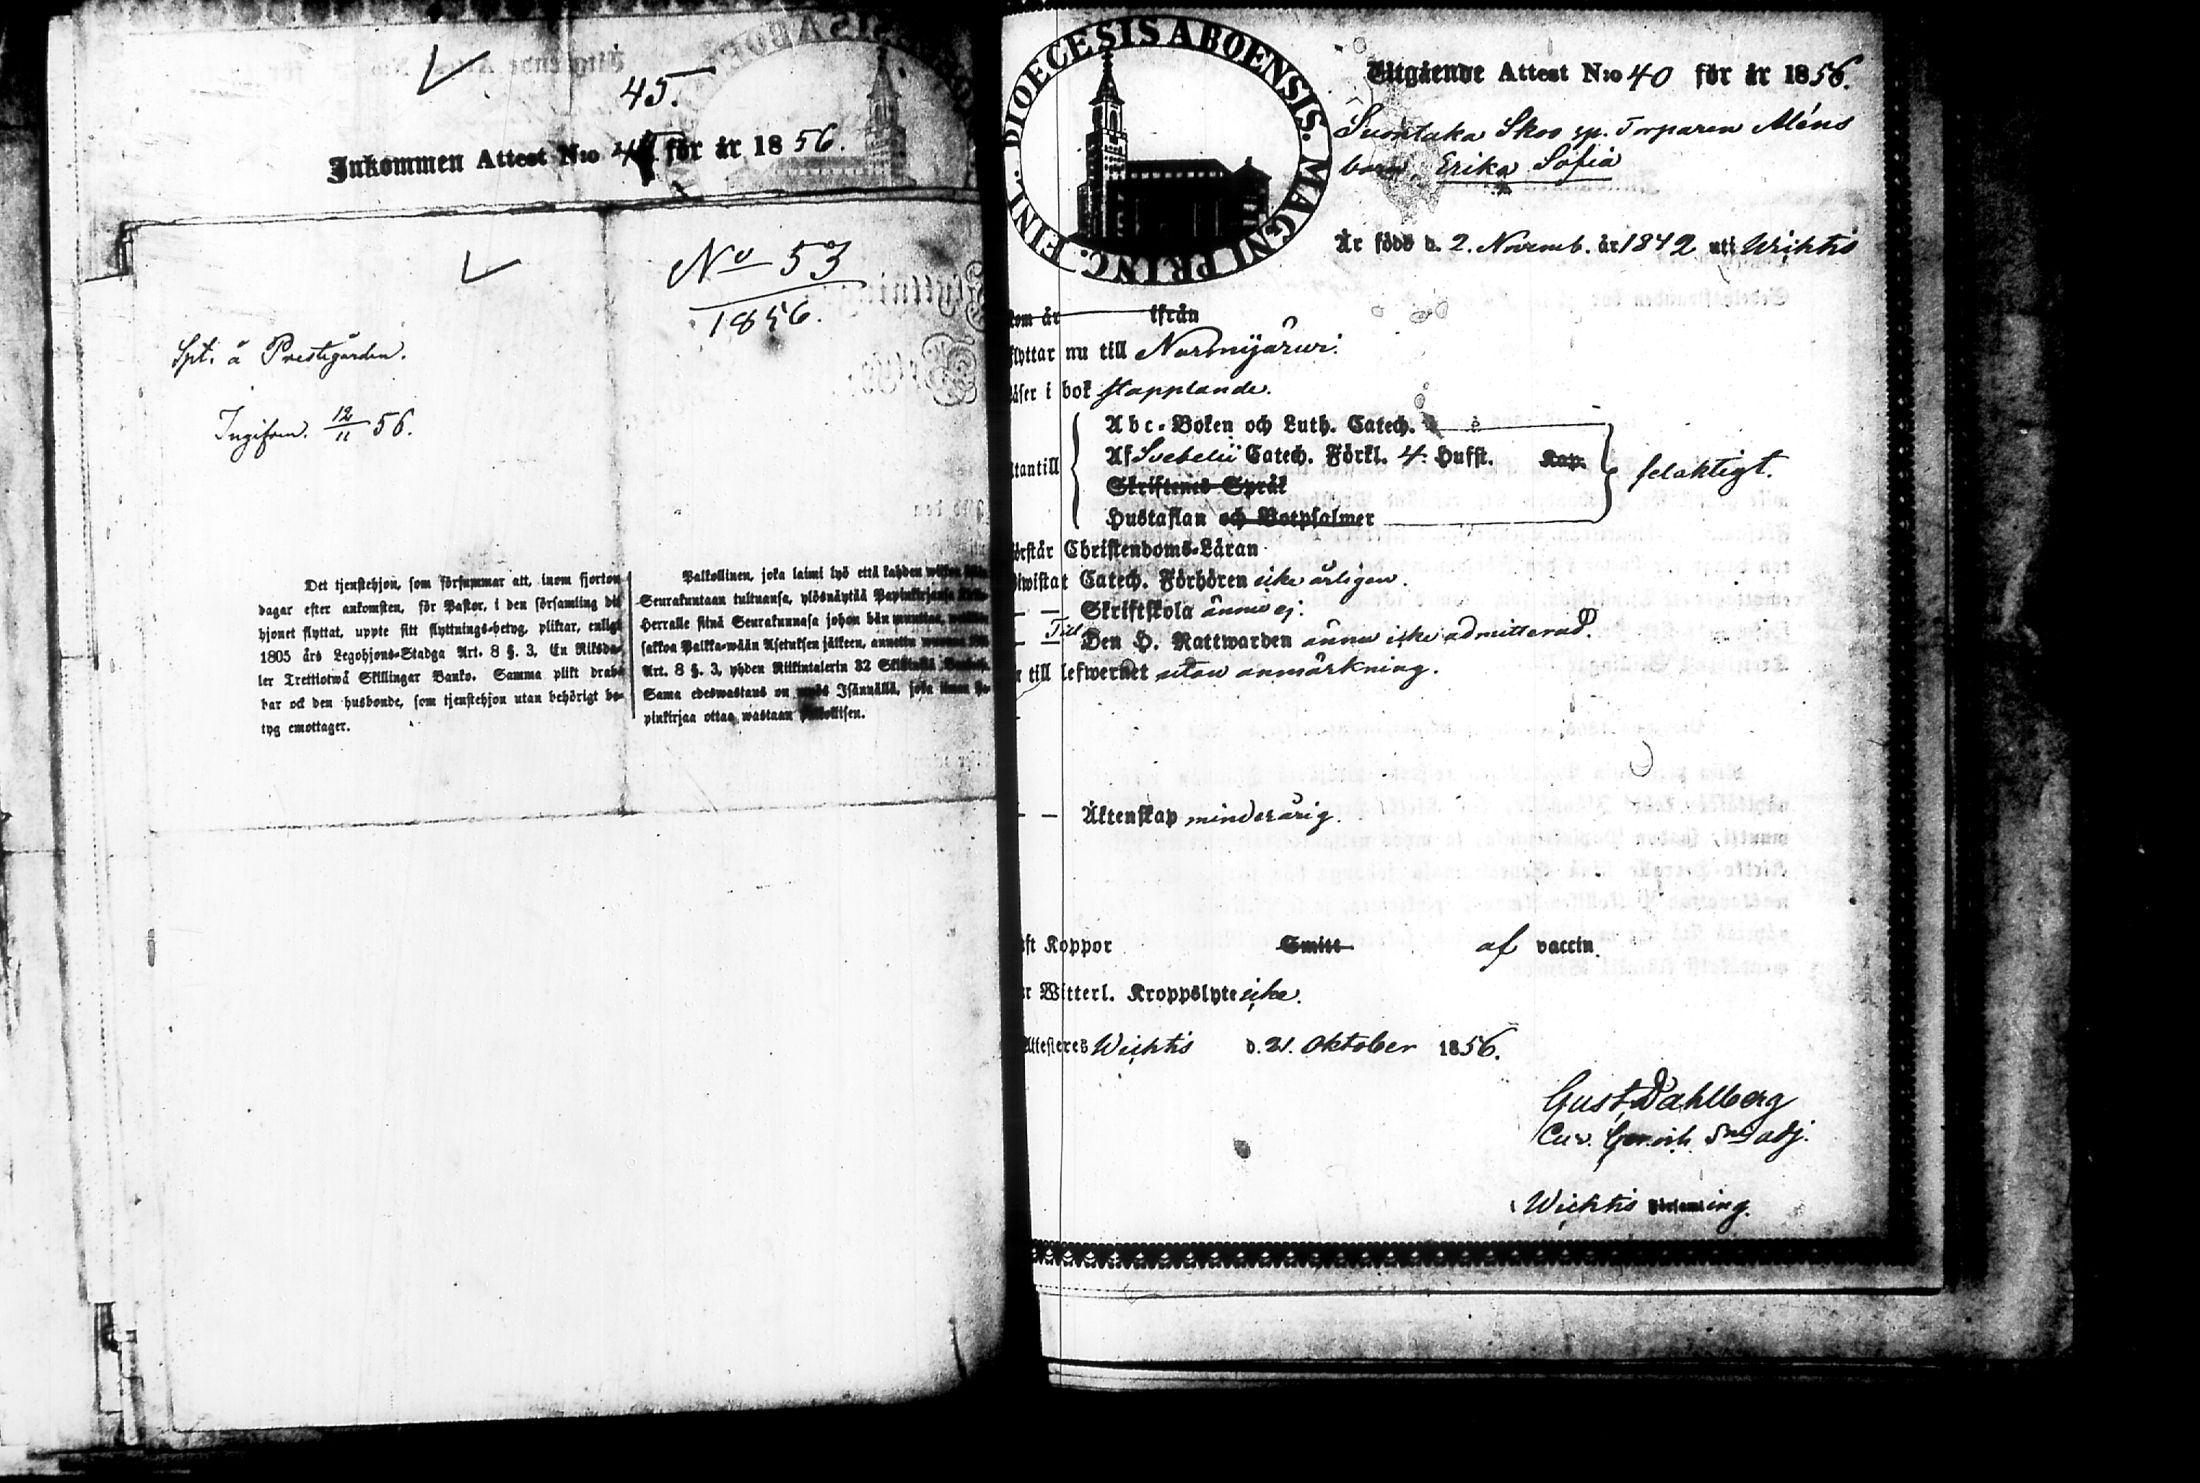 45.
Inkommen Attest N:o för år 1856.
No 53
1856.
Spt. å Prestgården.
12/11 56.
Det tjenstehjon, som försummar att, inom fjorton
dagar efter ankomsten, för Pastor, i den församling dit
hjonet flyttat, uppte sitt flyttnings-betyg, pliktar, enligt
1805 års Legohjons-Stadga Art. 8 §. 3, En Riksda-
ler Trettiotwå Skillingar Banko. Samma plikt drab-
bar ock den husbonde, som tjenstehjon utan behörigt be-
tyg emottager.
Palkollinen, joka laimi lyö että kahden
Seurakuntaan tultuansa, ylösnäyttää Papinkirjansa
Herralle siinä Seurakunnasa johon hän muuttaa,
sakkoa Palkka-wään Asetuksen jälkeen, annettu
Art. 8 §. 3, yhden Riikintalerin 32 Skillinkiä
Sama edeswastaus on myös Isännällä, joka ilman
pinkirjaa ottaa wastaan palkollisen.
DIOECESIS ABOENSIS. MAGNI PRINC. FINL.
Utgående Attest N:o 40 för år 1856.
Suontaka Skoo sp. Torparen Aléns
barn, Erika Sofia
Är född d. 2. Novemb. år 1842 uti Wichtis
kom år ifrån
flyttar nu till Nurmijärwi.
läser i bok stapplande.
Abc-Boken och Luth. Catech.
Af Svebelii Catech. Förkl. 4. Hufst. Kap.
utantill
felaktigt.
Skriftenes Språk
Hustaflan och Botpsalmer
förstår Christendoms-Läran
biwistat Catech. Förhören icke årligen.
— — Skriftskola ännu ej.
— — Till Den H. Nattwarden ännu icke admitterad.
är till lefwernet utan anmärkning.
— — Äktenskap minderårig.
haft Koppor Smitt af vaccin.
har Witterl. Kroppslyte icke.
Attesteres Wichtis d. 21. Oktober 1856.
Gust. Dahlberg
adj.
i Wichtis Församling.